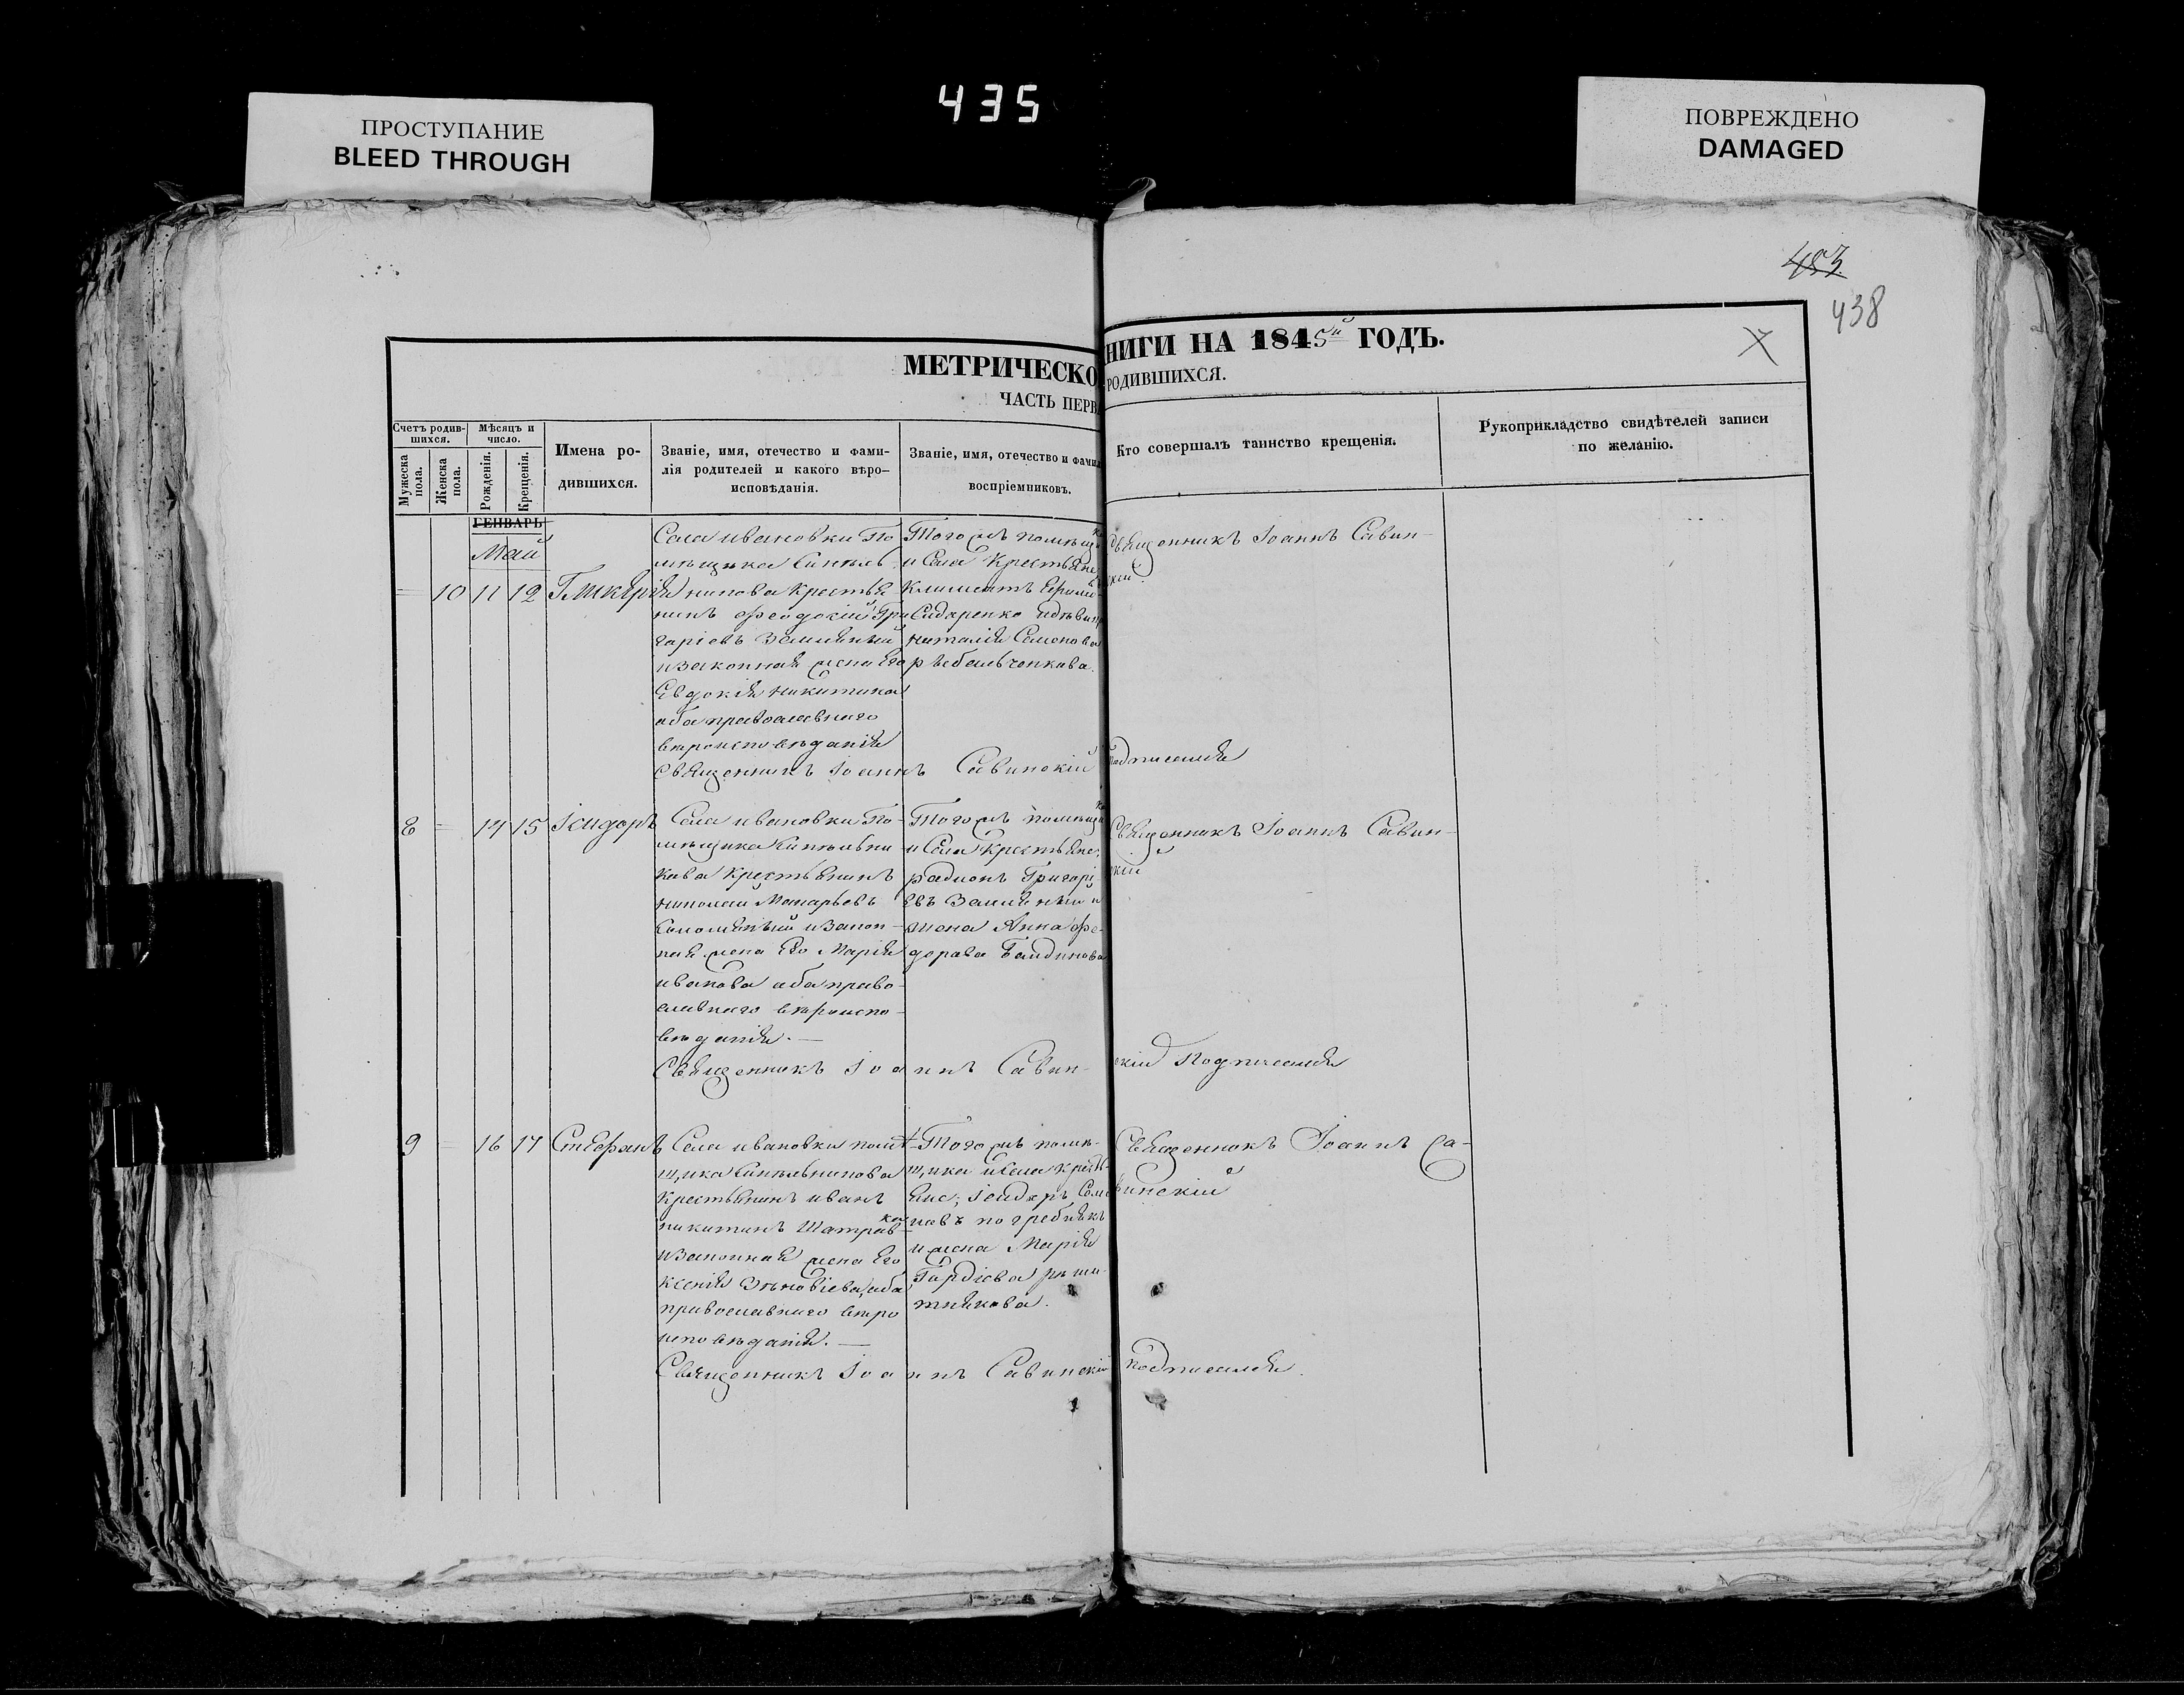 435
ПРОСТУПАНИЕ
BLEED THROUGH
ПОВРЕЖДЕНО
DAMAGED
453
438
МЕТРИЧЕСКО
НИГИ НА 1845й ГОДЪ.
ЧАСТЬ ПЕРВ
РОДИВШИХСЯ.
Счетъ родив-
шихся.
Мужеска
пола.
Женска
пола.
Мѣсяцъ и
число.
Рожденія.
Крещенія.
Имена ро-
дившихся.
Званіе, имя, отечество и фами-
лія родителей и какого вѣро-
исповѣданія.
Званіе, имя, отечество и фами
воспріемниковъ.
Кто совершалъ таинство крещенія.
Рукоприкладство свидѣтелей записи
по желанію.
ГЕНВАРЬ
Май
10 11 12 Гликерія
Села ивановки По
мѣщика Синѣль
никова Крестья
нинъ Феодосій Гри
горіевъ
изаконная жена Его
Евдокія никитина
оба православнаго
вѣроисповѣданія
Тогожъ помѣщи
и Села Крестьяне
Климентъ
Сидаренко
наталія Семенова
Священникъ Іоаннъ Савин-
скій
Священникъ Іоаннъ Савинскій подписался
8 14 15 Ісидоръ
Села ивановки По-
мѣщика Синѣльни
кова Крестьянинъ
николай Макарьевъ
и закон-
ная жена Его Марія
иванова оба право-
славнаго вѣроиспо-
вѣданія.
Тогожъ помѣщи
и Села Крестьяне;
радионъ Григорі
евъ
жена Анна Фе-
дорова
Священникъ Іоаннъ Савин-
скій
Священникъ Іоаннъ Савинскій Подписался
9 16 17 Стефанъ
Села ивановки помѣ-
щика Синѣльникова
Крестьянинъ иванъ
никитинъ
изаконная жена Его
Ксенія Зѣновіева, оба
православнаго вѣро
исповѣданія.
Тогожъ помѣ-
щика и Села Кресть-
яне; Ісидоръ Семе
новъ
и жена Марія
Гордіева
Священникъ Іоаннъ Са-
винскій
Священникъ Іоаннъ Савинскій подписался.